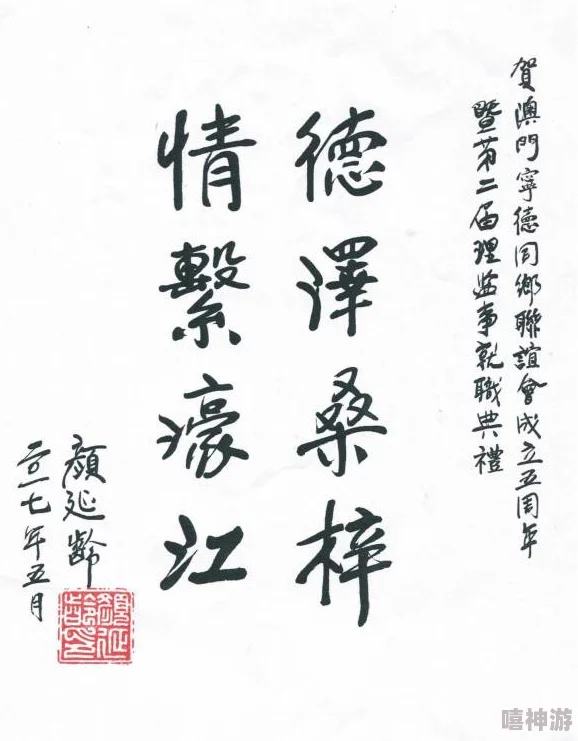 賀澳門寧德同鄉聯誼會成立五周年
暨第二届理監事就職典禮
德澤桑梓
情繫濠江
顏延齡
二〇一七年五月
顏延齡印
嘻神游